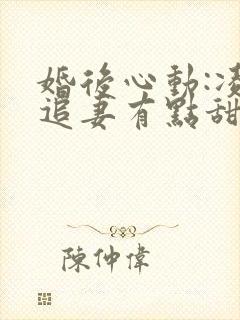 婚後心動:凌
追妻有點甜
陳仲偉